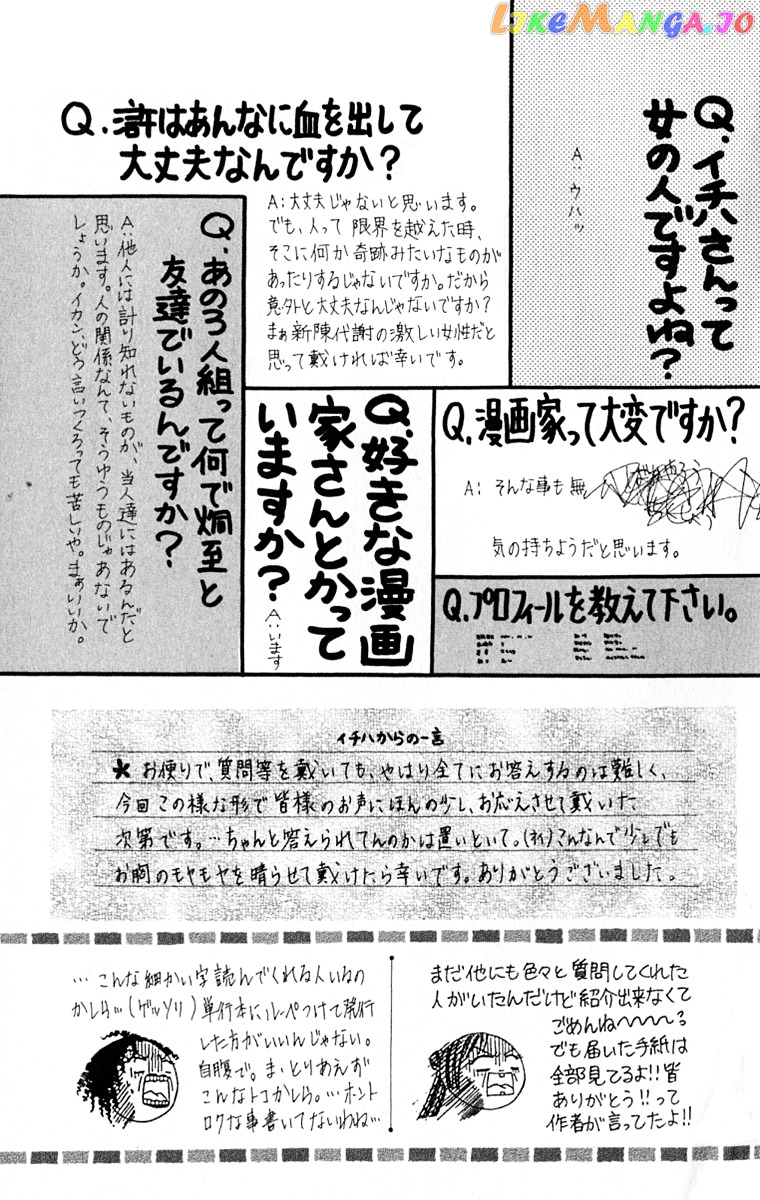 LIKEMANGA.IO
Q.イチハさんって
女の人ですよね?
A:ウハッ
Q.滸はあんなに血を出して
大丈夫なんですか?
A:大丈夫じゃないと思います。
でも、人って限界を越えた時、
そこに何か奇跡みたいなものが
あったりするじゃないですか。だから
意外と大丈夫なんじゃないですか?
まぁ新陳代謝の激しい女性だと
思って戴ければ幸いです。
Q.あの3人組って何で炯至と
友達でいるんですか?
A:他人には計り知れないものが、当人達にはあるんだと
思います。人の関係なんて、そうゆうものじゃあないで
しょうか。イカン、どう言いつくろっても苦しいや。まぁいいか。
Q.好きな漫画
家さんとかって
いますか?
A:います
Q.漫画家って大変ですか?
A:そんな事も無
気の持ちようだと思います。
Q.プロフィールを教えて下さい。
イチハからの一言
★お便りで、質問等を戴いても、やはり全てにお答えするのは難しく、
今回この様な形で皆様のお声にほんの少し、お応えさせて戴いた
次第です。…ちゃんと答えられてんのかは置いといて。(オイ)こんなんで少しでも
お胸のモヤモヤを晴らせて戴けたら幸いです。ありがとうございました。
まだ他にも色々と質問してくれた
人がいたんだけど紹介出来なくて
ごめんね〜〜〜る
でも届いた手紙は
全部見てるよ!!皆
ありがとう!!って
作者が言ってたよ!!
…こんな細かい字読んでくれる人いるの
かしら…(ゲッソリ)単行本にルーペつけて発行
した方がいいんじゃない。
自腹で。ま、とりあえず
こんなトコかしら。…ホント
ロクな事書いてないわね…